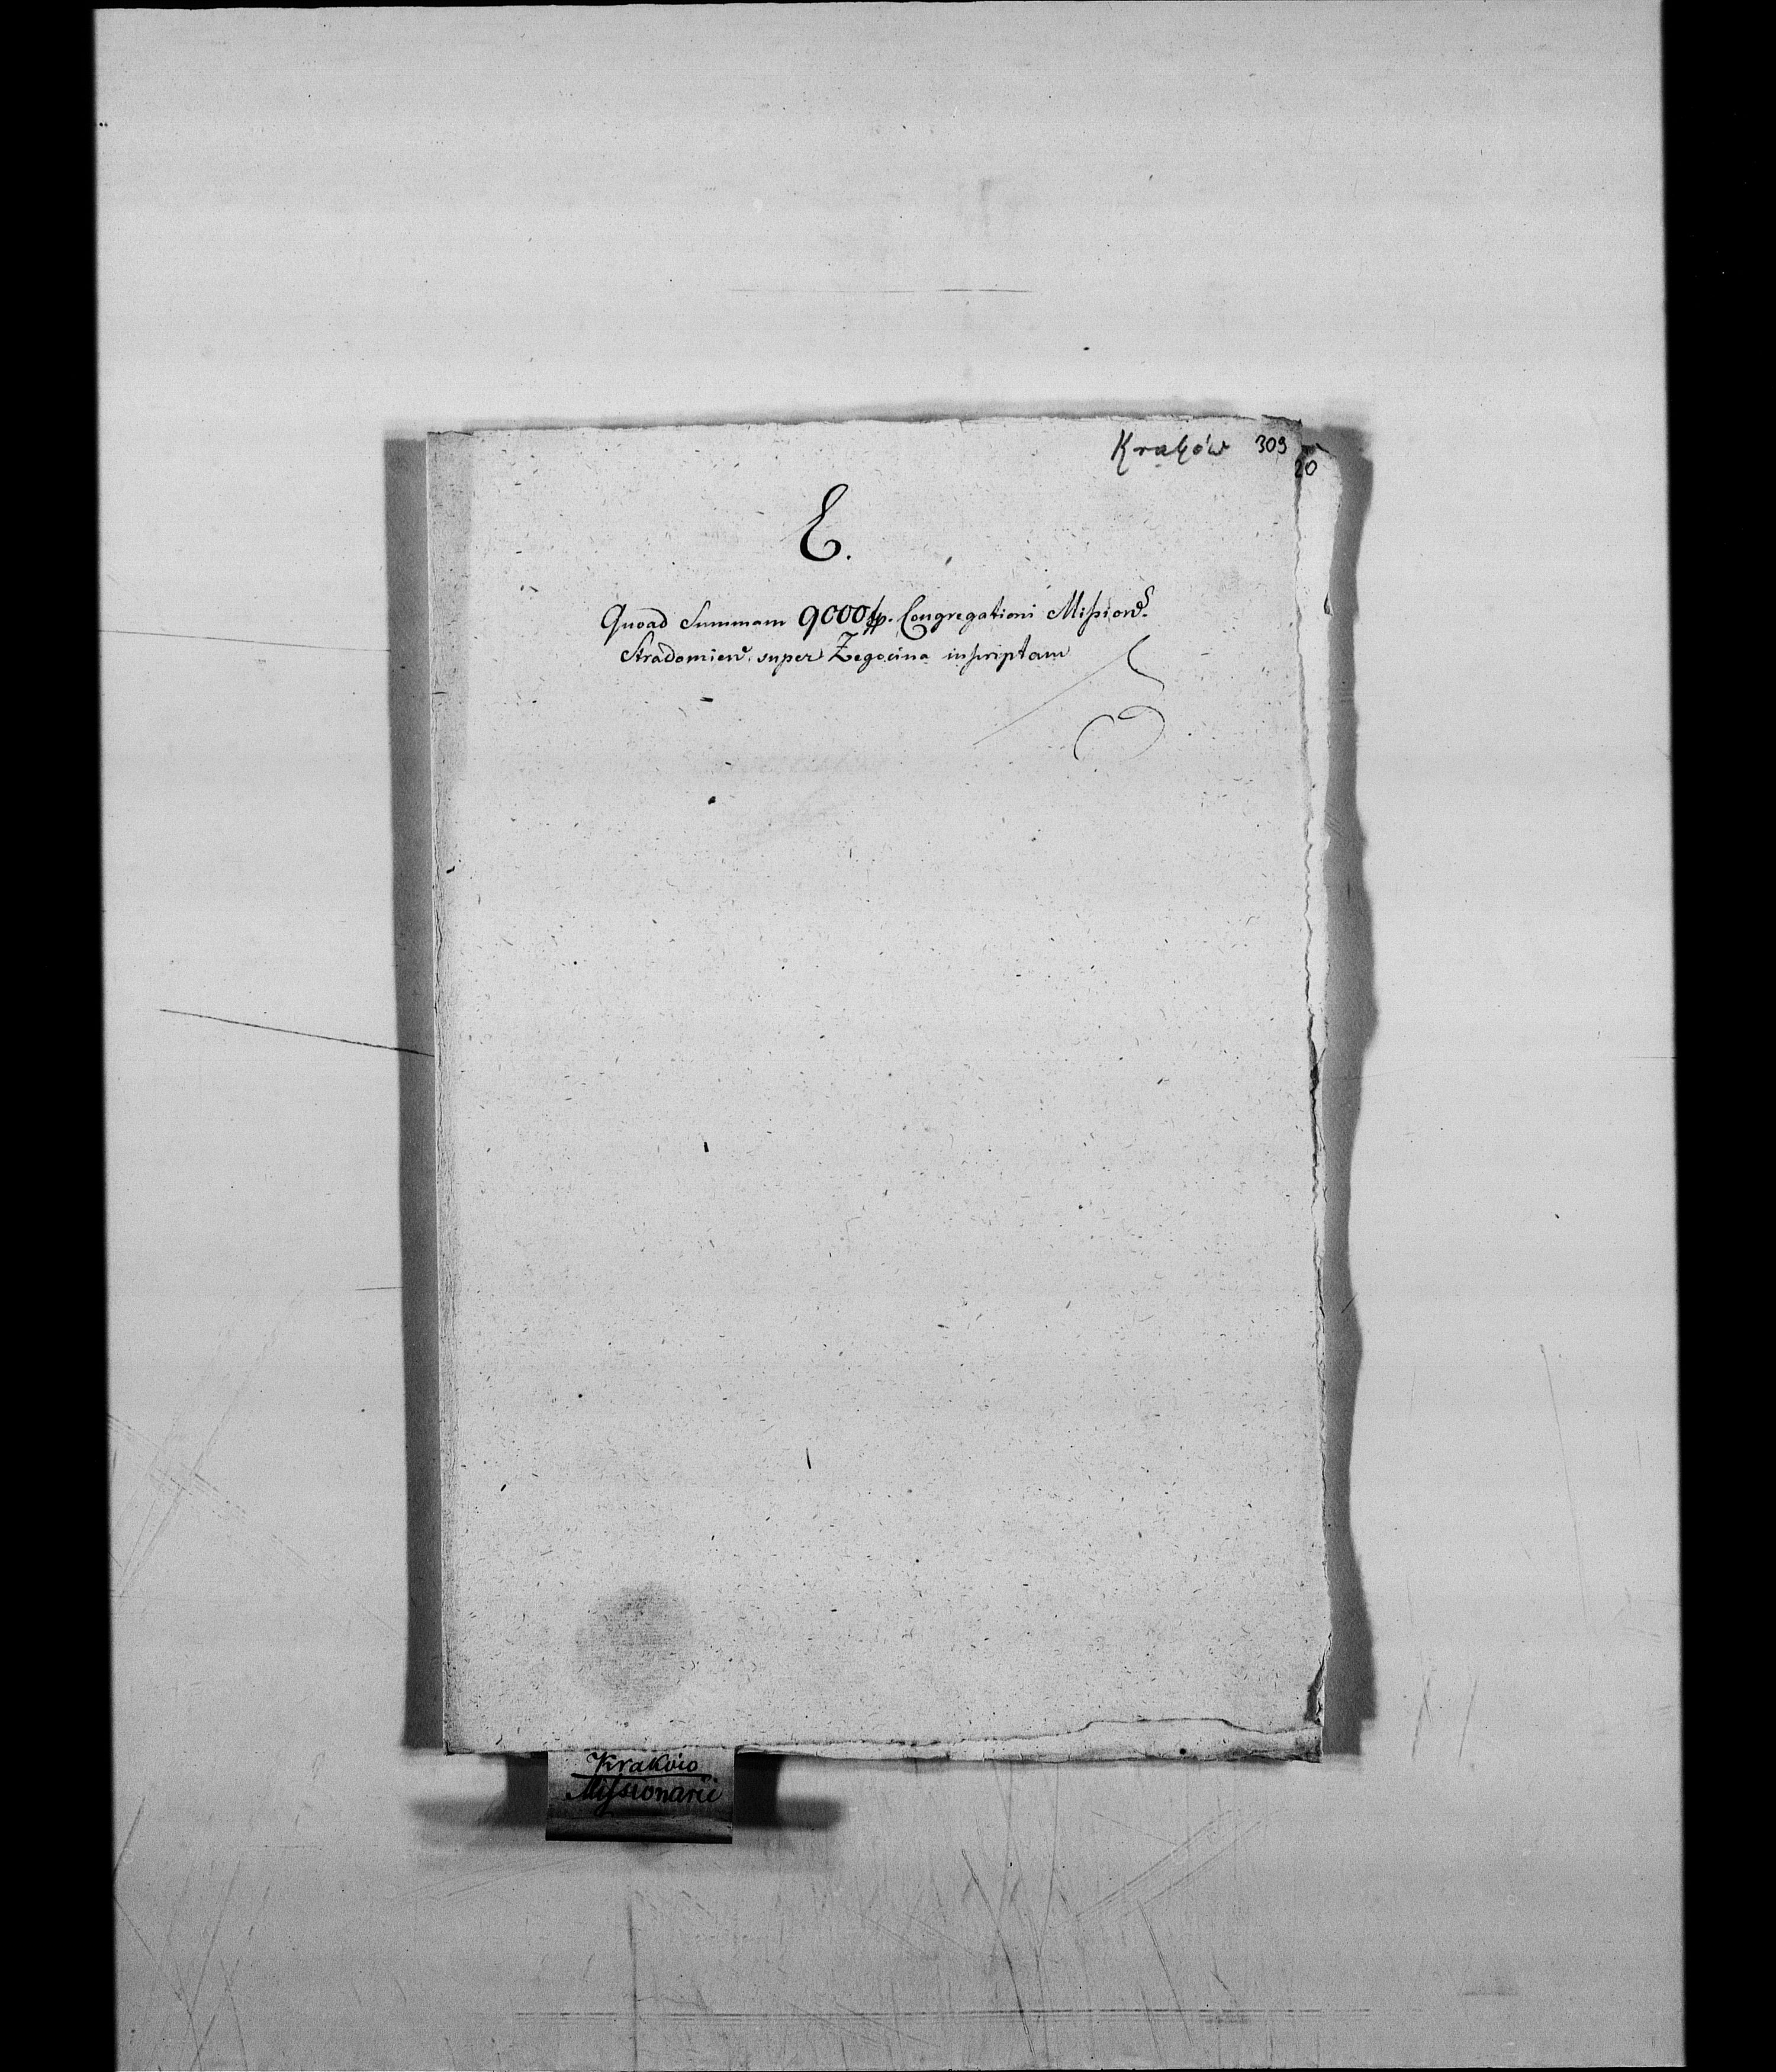 Kraków 309
20
E.
Quoad Summam 9000 fp. Congregationi Mission̅s
Stradomien̅. super Żegocina inscriptam
Kraków
Missionarii